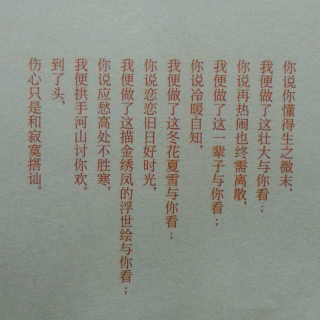 你说你懂得生之微末，
我便做了这壮大与你看；
你说再热闹也终需离散，
我便做了这一辈子与你看；
你说冷暖自知，
我便做了这冬花夏雪与你看；
你说恋恋旧日好时光，
我便做了这描金绣凤的浮世绘与你看；
你说应愁高处不胜寒，
我便拱手河山讨你欢。
到了头，
伤心只是和寂寞搭讪。